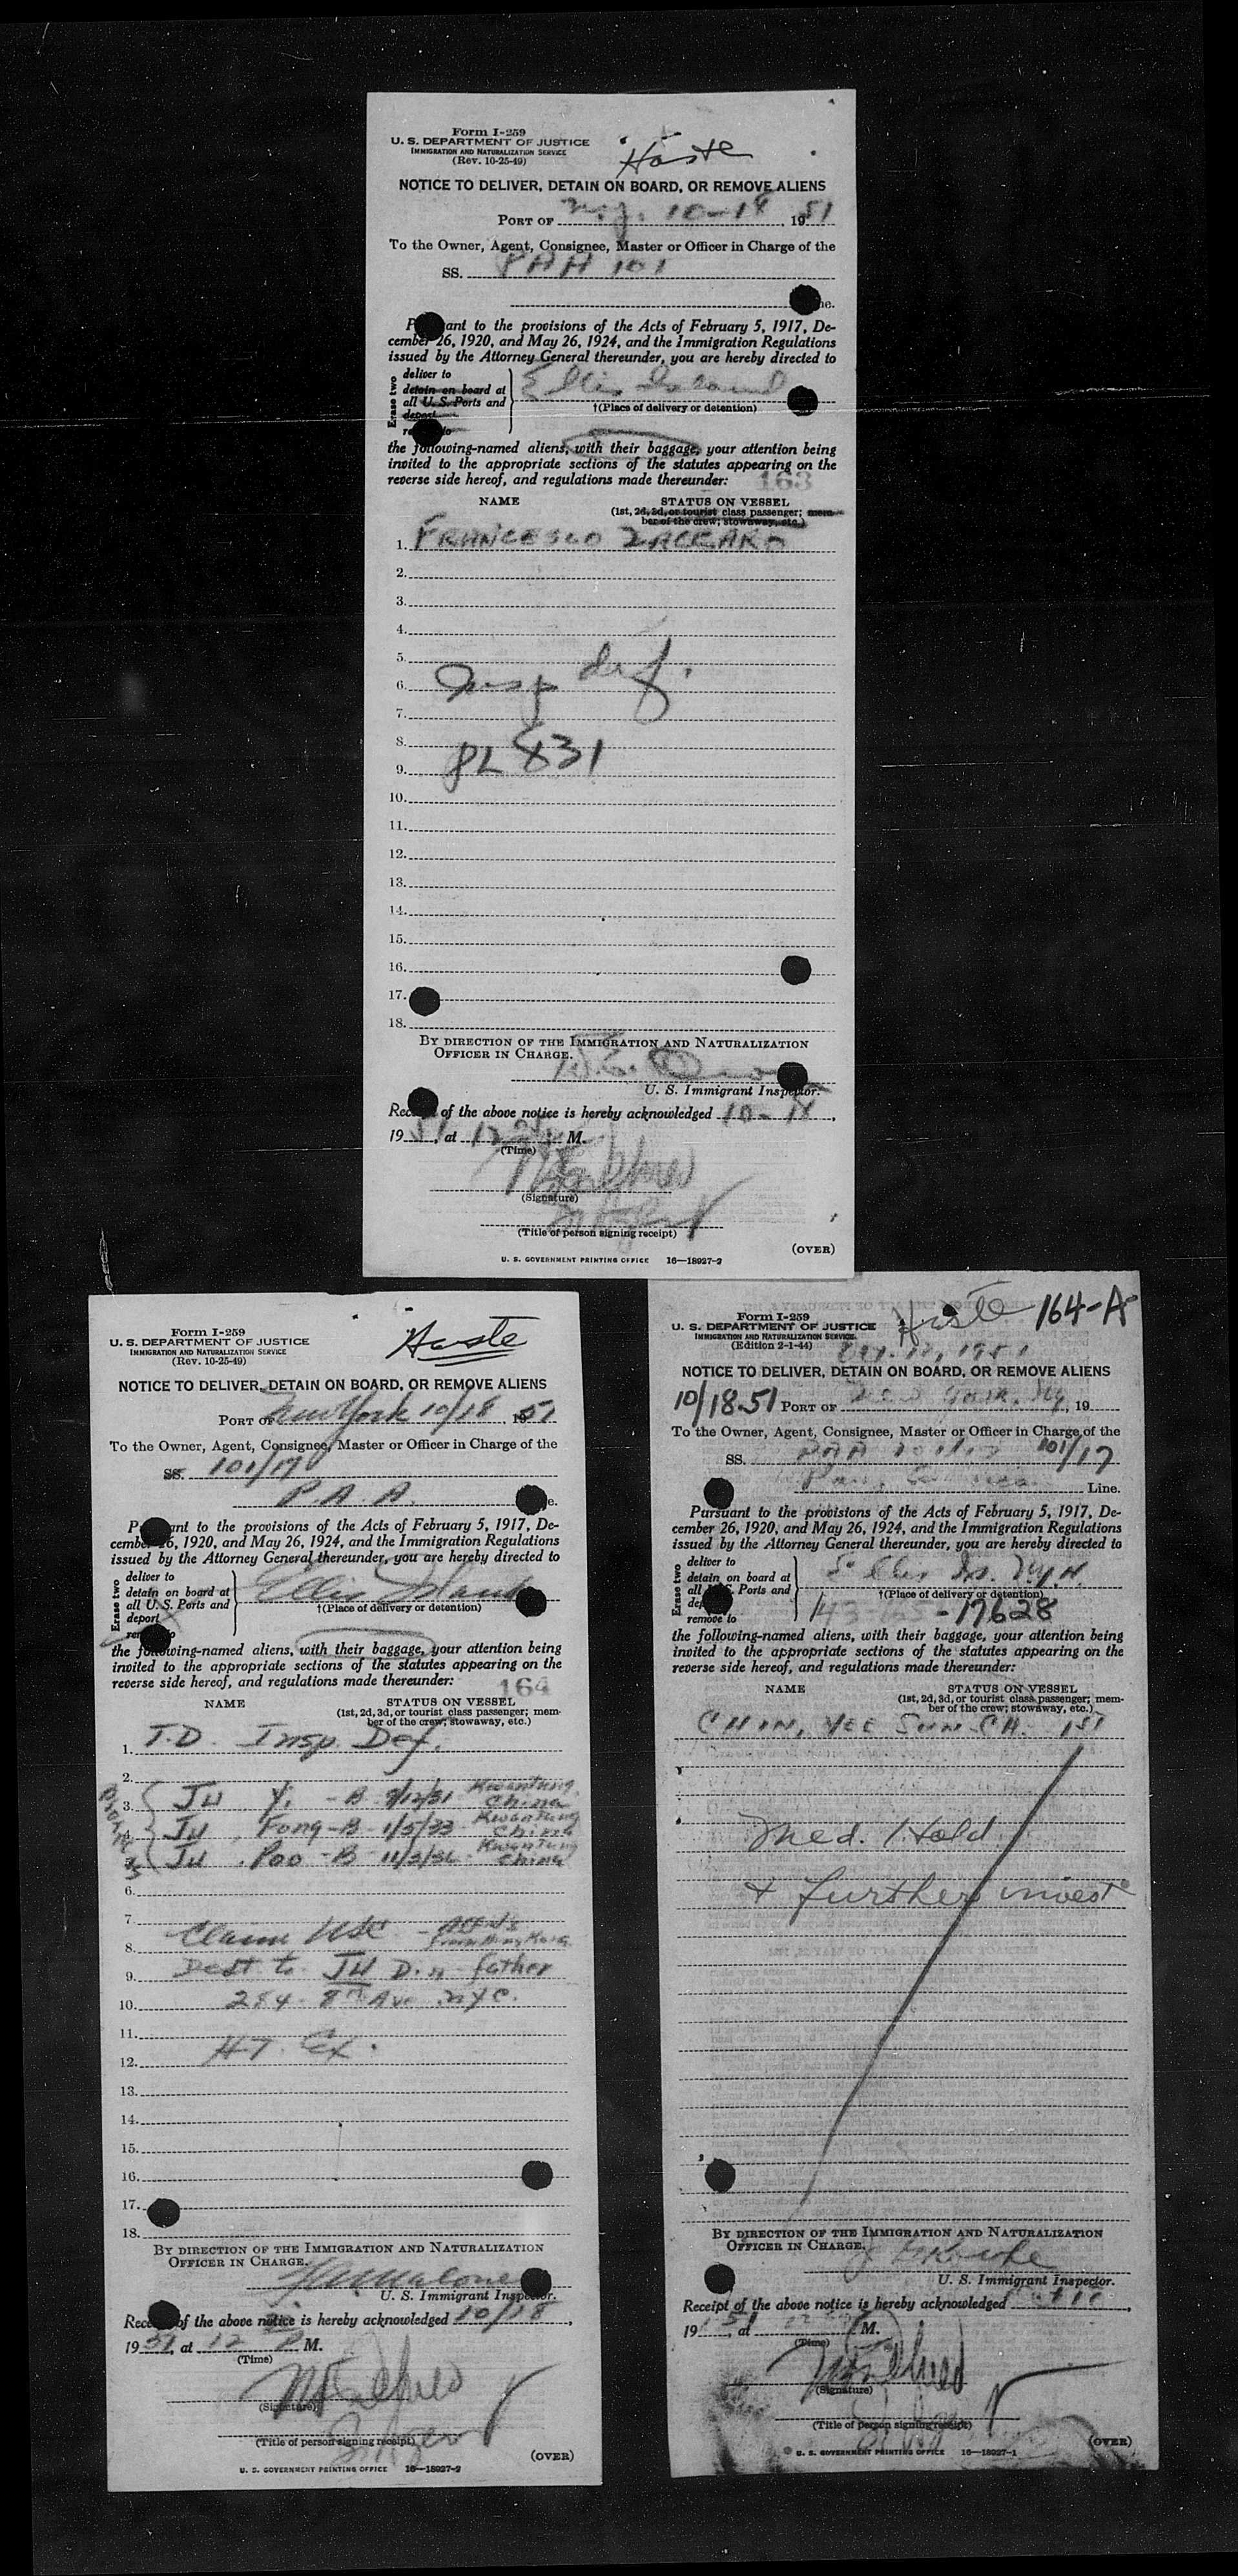 Form I-259
U. S. DEPARTMENT OF JUSTICE
IMMIGRATION AND NATURALIZATION SERVICE
(Rev. 10-25-49)
Haste
NOTICE TO DELIVER, DETAIN ON BOARD, OR REMOVE ALIENS
PORT OF N.Y. 10-18, 1951
To the Owner, Agent, Consignee, Master or Officer in Charge of the
SS. PAA 101
Pursuant to the provisions of the Acts of February 5, 1917, De-
cember 26, 1920, and May 26, 1924, and the Immigration Regulations
issued by the Attorney General thereunder, you are hereby directed to
Erase two
deliver to
detain on board at
all U. S. Ports and
deport
remove to
Ellis Island
†(Place of delivery or detention)
the following-named aliens, with their baggage, your attention being
invited to the appropriate sections of the statutes appearing on the
reverse side hereof, and regulations made thereunder:
163
NAME STATUS ON VESSEL
(1st, 2d, 3d, or tourist class passenger; mem-
ber of the crew; stowaway, etc.)
1. FRANCESCO ZACCARO
2.
3.
4.
5.
6. Insp def.
7.
8.
9. PL 831
10.
11.
12.
13.
14.
15.
16.
17.
18.
BY DIRECTION OF THE IMMIGRATION AND NATURALIZATION
OFFICER IN CHARGE.
U. S. Immigrant Inspector.
Receipt of the above notice is hereby acknowledged 10-18,
1951, at 12 M.
(Time)
(Signature)
(Title of person signing receipt)
(OVER)
U. S. GOVERNMENT PRINTING OFFICE 16—18927-2
Form I-259
U. S. DEPARTMENT OF JUSTICE
IMMIGRATION AND NATURALIZATION SERVICE
(Rev. 10-25-49)
Haste
NOTICE TO DELIVER, DETAIN ON BOARD, OR REMOVE ALIENS
PORT OF New York 10/18 1951
To the Owner, Agent, Consignee, Master or Officer in Charge of the
SS. 101/17
P.A.A.
Pursuant to the provisions of the Acts of February 5, 1917, De-
cember 26, 1920, and May 26, 1924, and the Immigration Regulations
issued by the Attorney General thereunder, you are hereby directed to
Erase two
deliver to
detain on board at
all U. S. Ports and
deport
remove to
Ellis Island
†(Place of delivery or detention)
the following-named aliens, with their baggage, your attention being
invited to the appropriate sections of the statutes appearing on the
reverse side hereof, and regulations made thereunder:
164
NAME STATUS ON VESSEL
(1st, 2d, 3d, or tourist class passenger; mem-
ber of the crew; stowaway, etc.)
1. T.D. Insp. Def.
2.
3. JU Yi - B 9/12/31 Kwantung China
4. JU, Fong - B - 1/5/33 Kwantung China
5. JU, Poo - B - 11/3/36 Kwantung China
6.
7.
8. Claim USC
9. Dest to JU Din father
10. 284 - 8th Ave NYC.
11.
12. HT. Ex.
13.
14.
15.
16.
17.
18.
BY DIRECTION OF THE IMMIGRATION AND NATURALIZATION
OFFICER IN CHARGE.
U. S. Immigrant Inspector.
Receipt of the above notice is hereby acknowledged 10/18,
1951, at 12 M.
(Time)
(Signature)
(Title of person signing receipt)
(OVER)
U. S. GOVERNMENT PRINTING OFFICE 16—18927-2
Form I-259
U. S. DEPARTMENT OF JUSTICE
IMMIGRATION AND NATURALIZATION SERVICE
(Edition 2-1-44)
Haste 164-A
NOTICE TO DELIVER, DETAIN ON BOARD, OR REMOVE ALIENS
10/18-51 PORT OF New York, NY, 19
To the Owner, Agent, Consignee, Master or Officer in Charge of the
SS. PAA 101/17
Line.
Pursuant to the provisions of the Acts of February 5, 1917, De-
cember 26, 1920, and May 26, 1924, and the Immigration Regulations
issued by the Attorney General thereunder, you are hereby directed to
Erase two
deliver to
detain on board at
all U. S. Ports and
deport
remove to
Ellis Is. N.Y.H.
†(Place of delivery or detention)
-17628
the following-named aliens, with their baggage, your attention being
invited to the appropriate sections of the statutes appearing on the
reverse side hereof, and regulations made thereunder:
NAME STATUS ON VESSEL
(1st, 2d, 3d, or tourist class passenger; mem-
ber of the crew; stowaway, etc.)
CHIN, YEE SUN - CH. 1st
Med. Hold
& further invest
BY DIRECTION OF THE IMMIGRATION AND NATURALIZATION
OFFICER IN CHARGE.
U. S. Immigrant Inspector.
Receipt of the above notice is hereby acknowledged
1951, at M.
(Time)
(Signature)
(Title of person signing receipt)
(OVER)
U. S. GOVERNMENT PRINTING OFFICE 16—18927-1